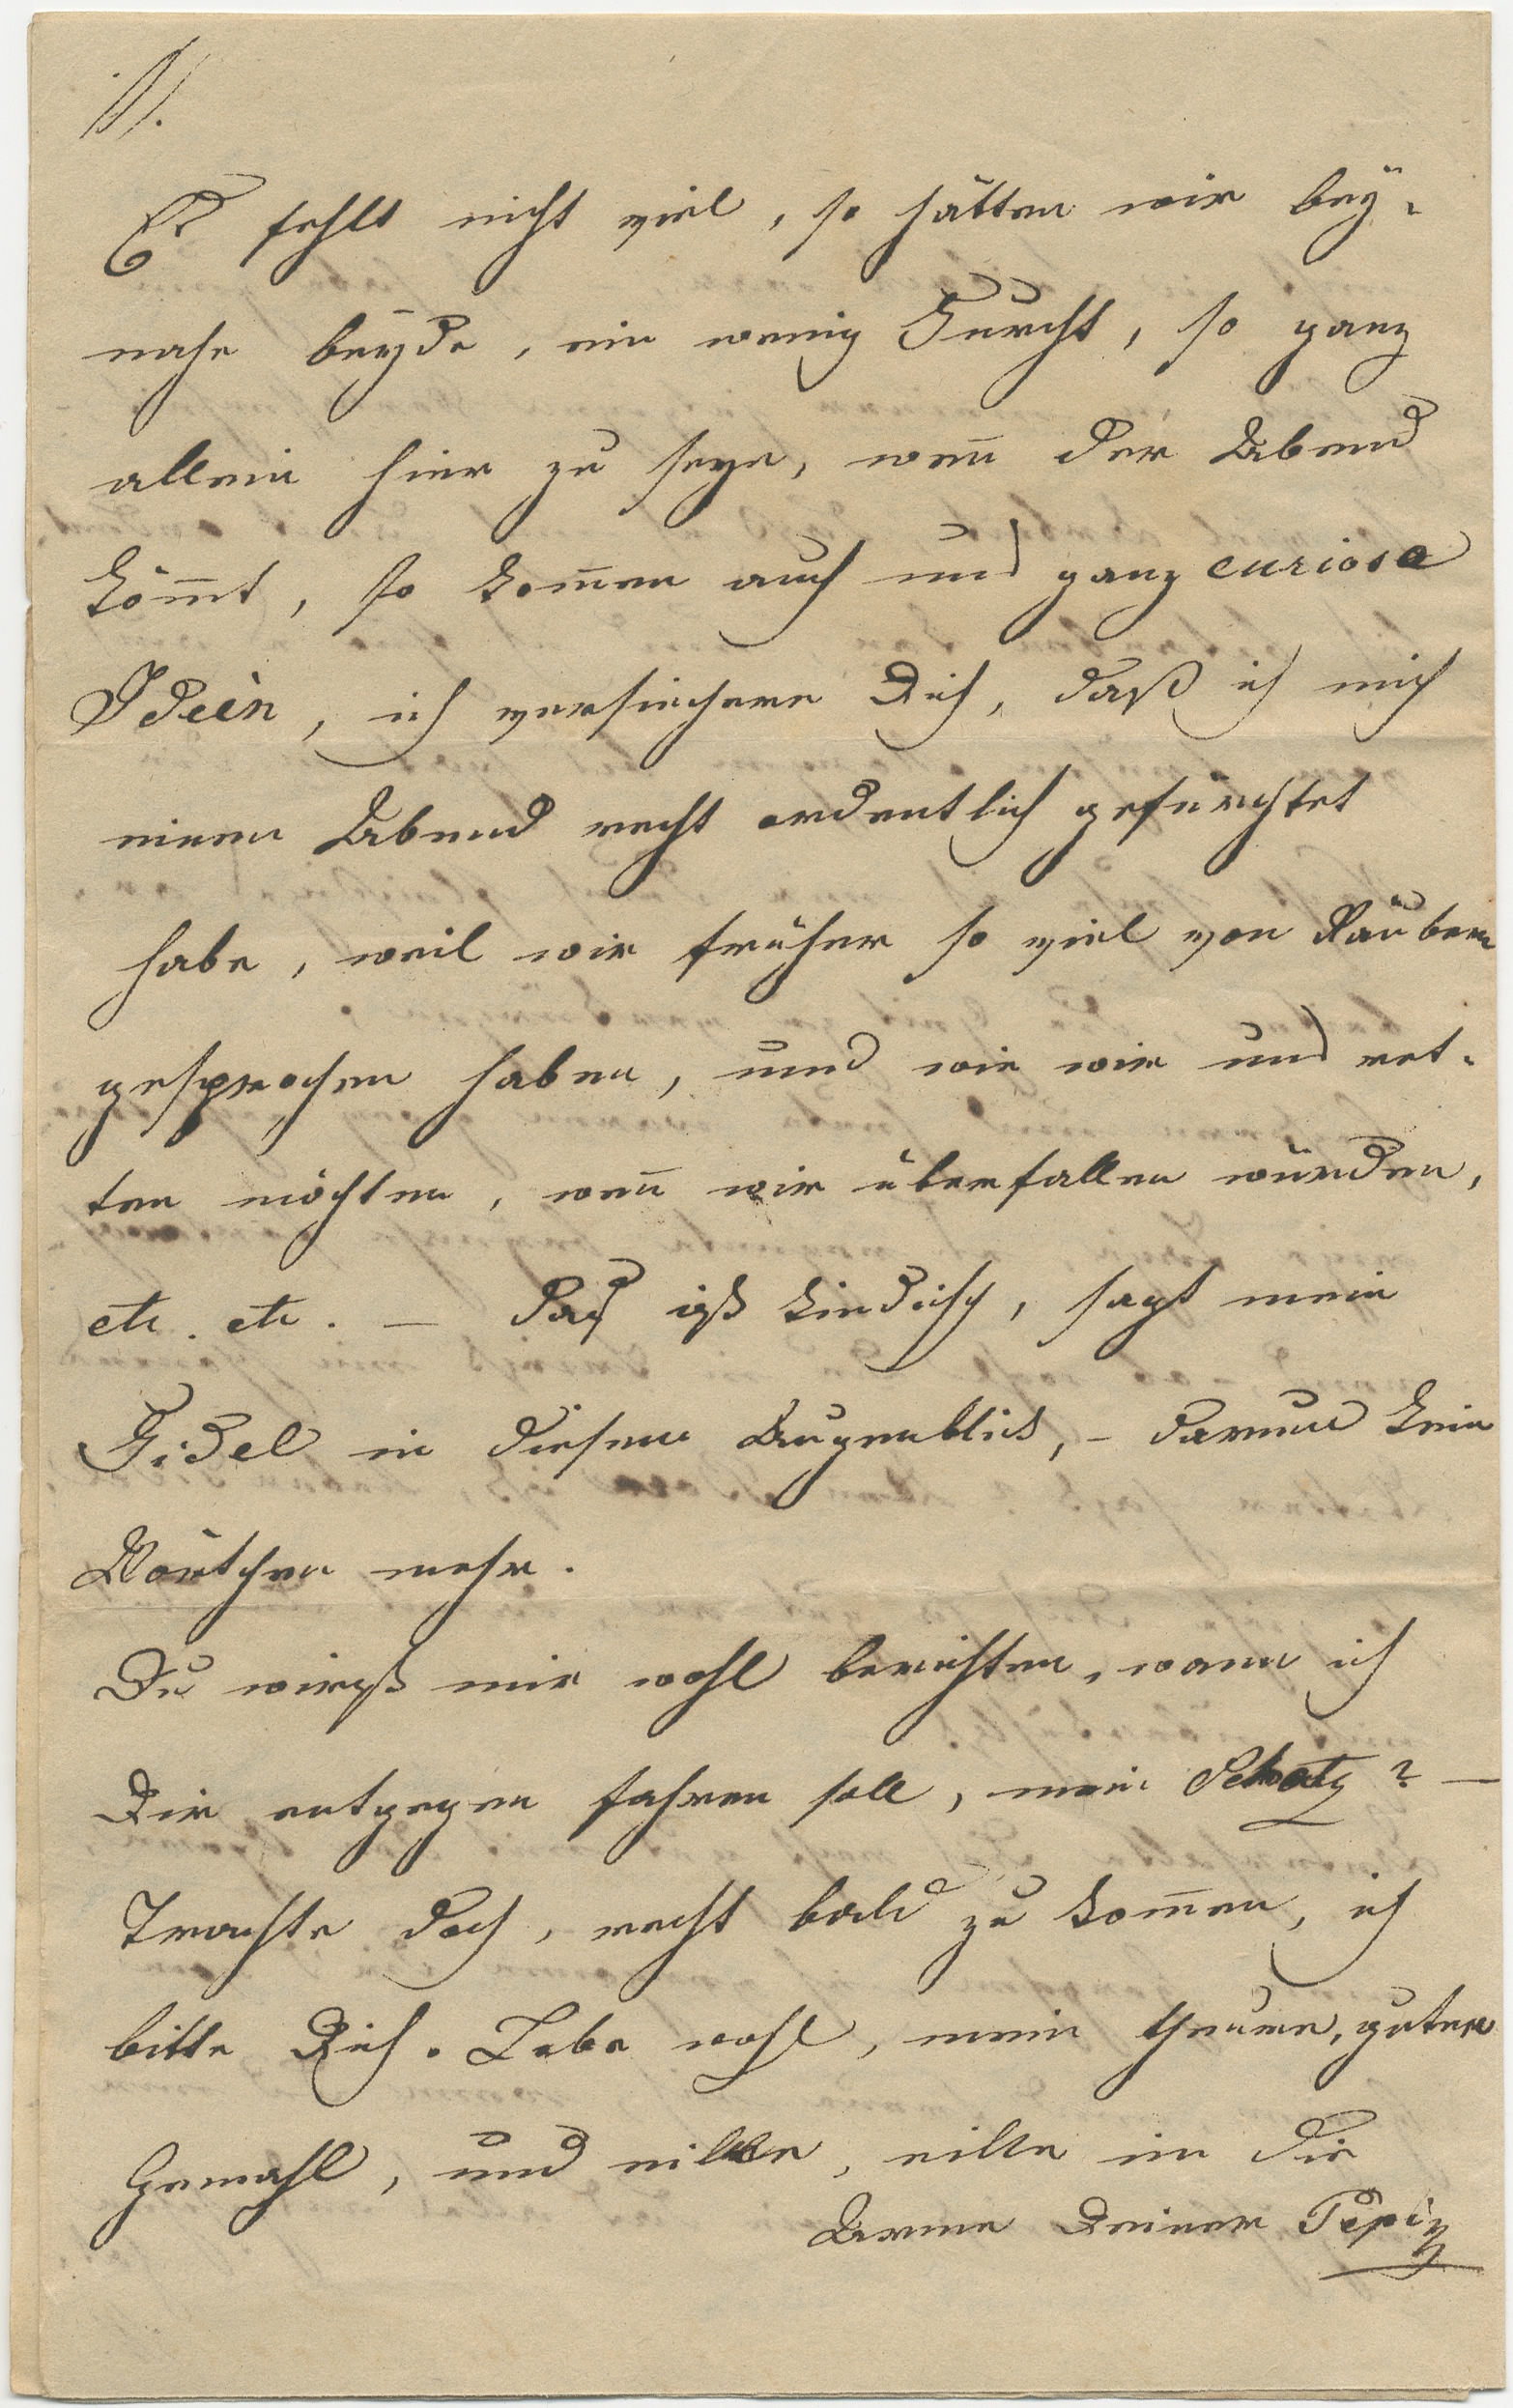 Es fehlt nicht viel, so hätten wir bey-
nahe beyde, ein wenig Furcht, so ganz
allein hier zu seyn, wen̄ der Abend
köm̄t, so kom̄en auch uns ganz curiose
Ideèn, ich versichere Dich, daß ich mich
einen Abend recht ordentlich gefürchtet
habe, weil wir früher so viel von Räubern
gesprochen haben, und wie wir uns ret-
ten möchten, wen̄ wir überfallen würden,
etc. etc. — Das ist kindisch, sagt mein
Fidel in diesem Augenblick, – darum kein
Wörtchen mehr.
Du wirst mir wohl berichten, wann ich
Dir entgegen fahren soll, mein Schatz? —
Trachte doch, recht bald zu kom̄en, ich
bitte Dich. Lebe wohl, mein theurer, guter
Gemahl, und eille, eille in die
Arme Deiner Pepi